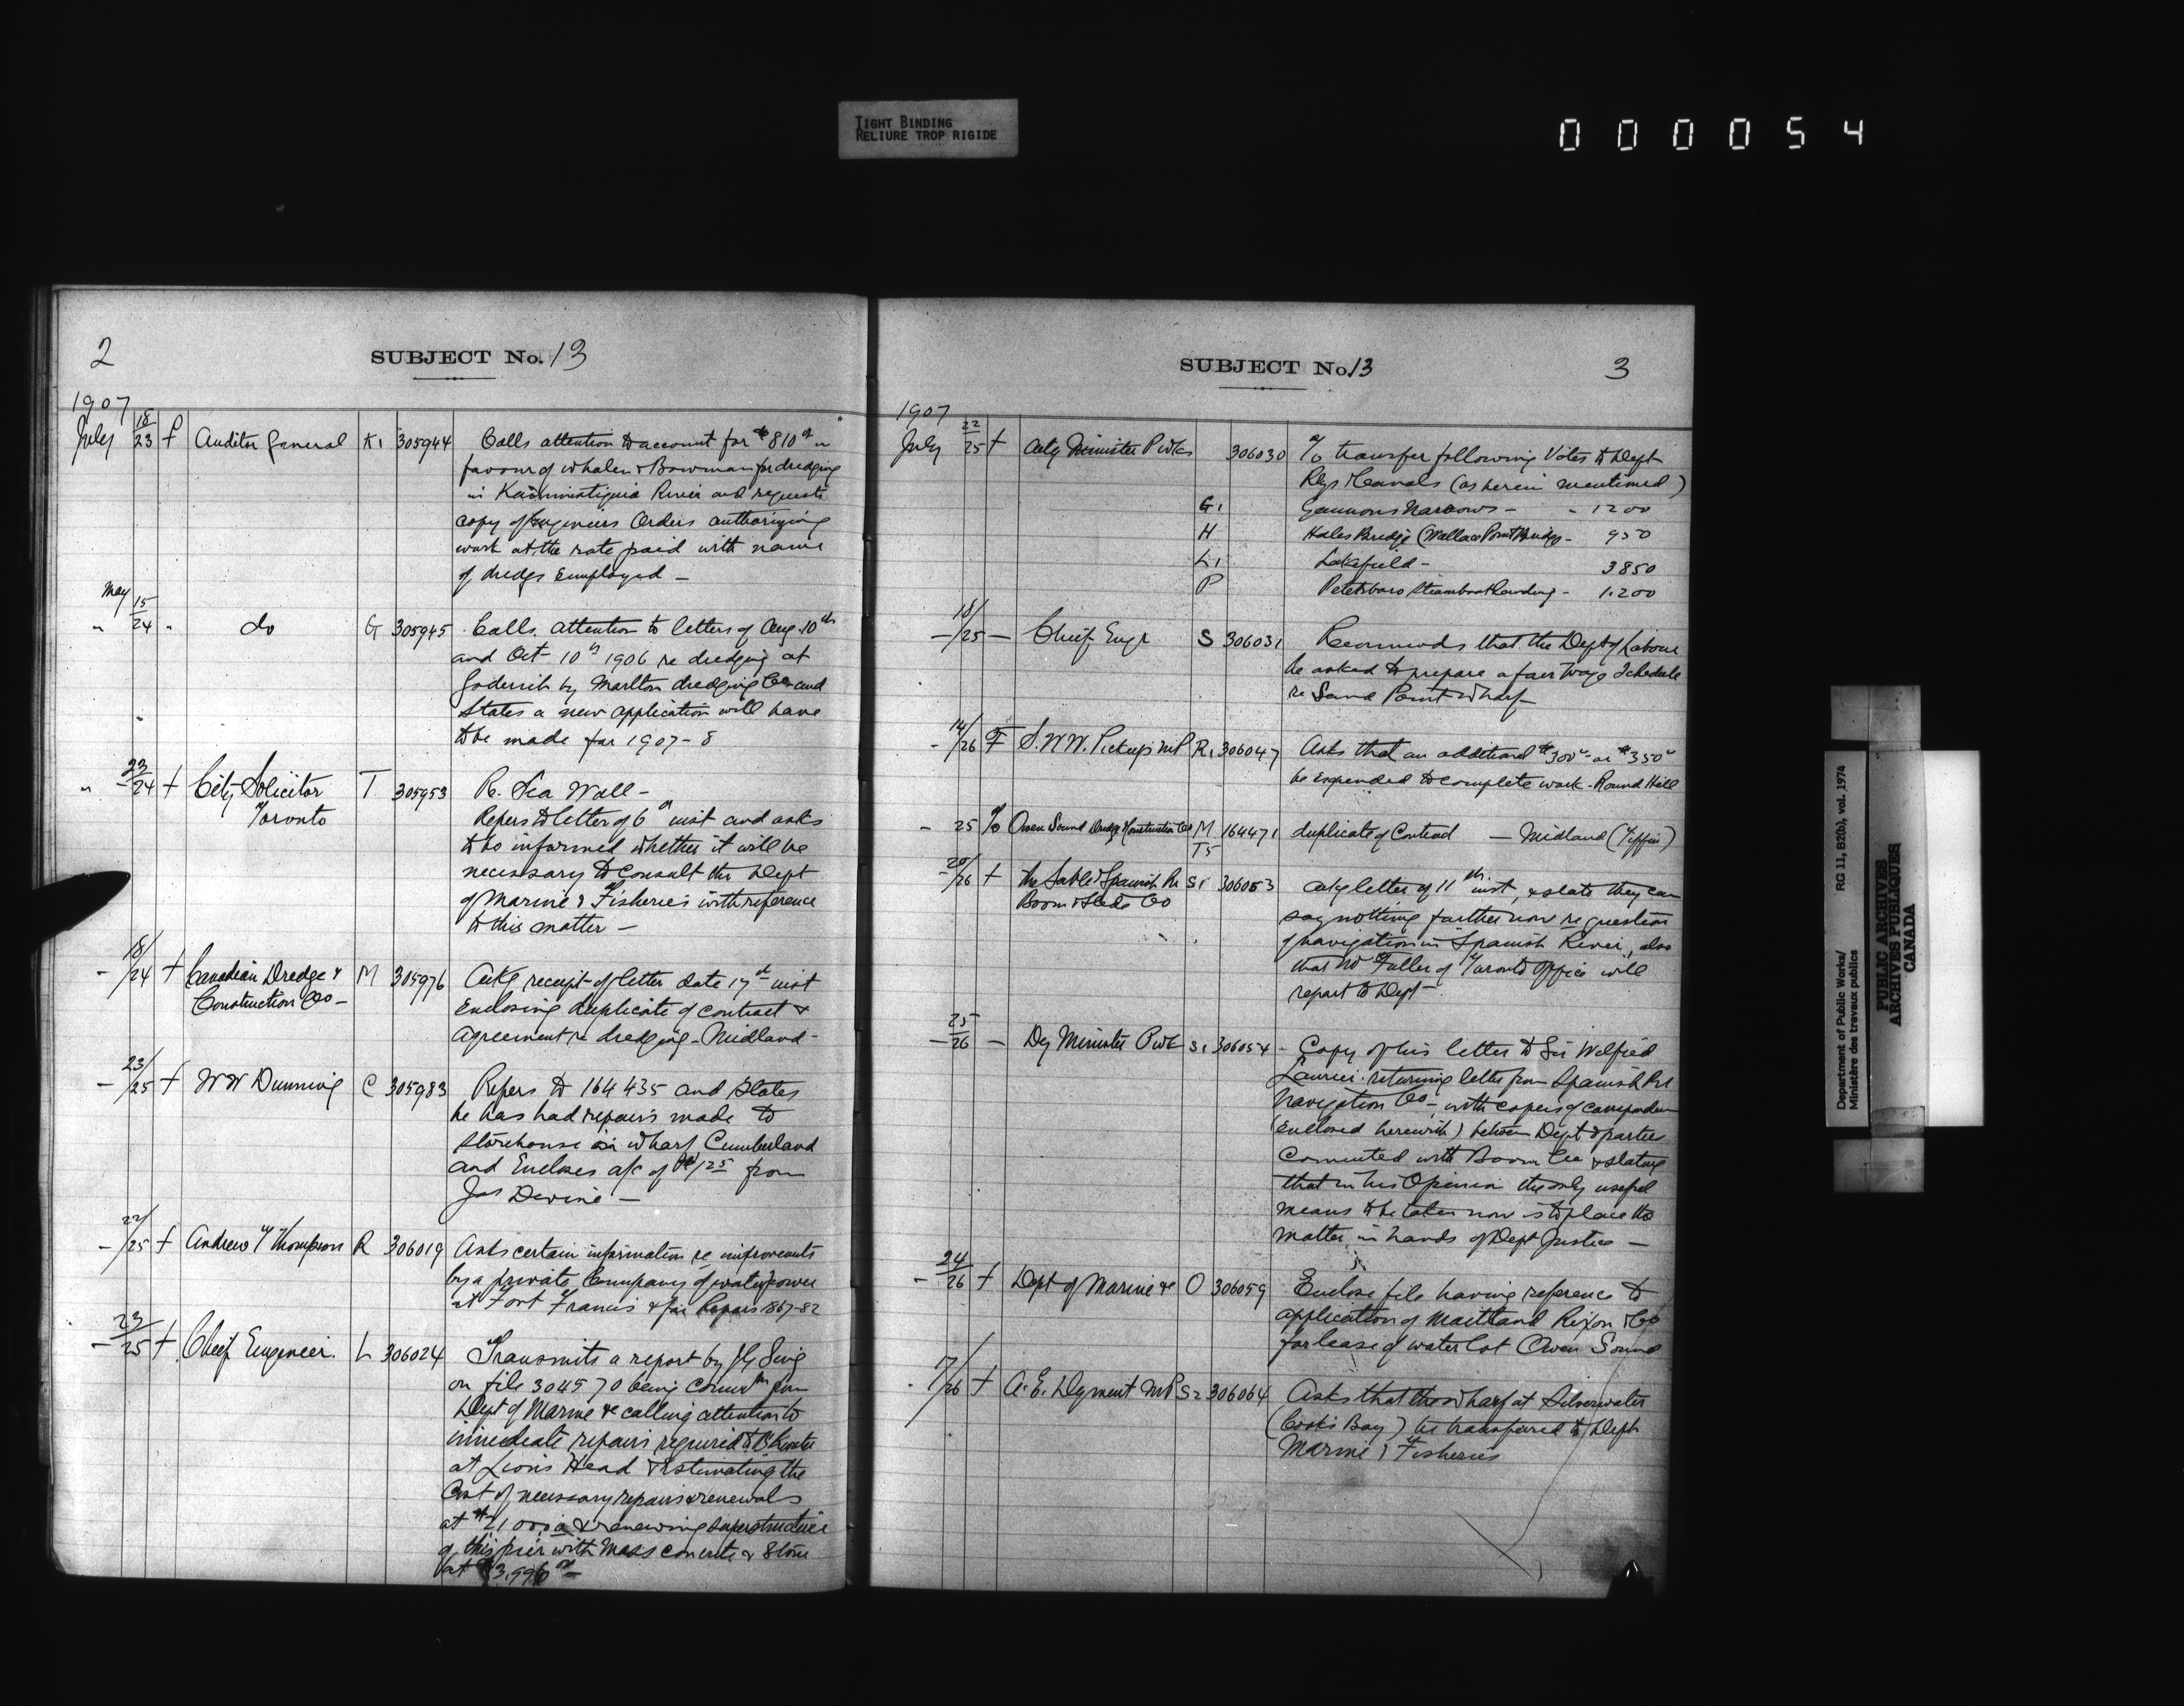 TIGHT BINDING
RELIURE TROP RIGIDE
000054
2
SUBJECT No. 13
1907
July 18/23 f Auditor General K1 305944 Calls attention to account for $810 in
favour of Whalen & Bowman for dredging
in Kaministiquia River and requests
copy of Engineers Orders authorizing
work at the rate paid with name
of dredge employed —
May
" 15/24 " do G 305945 Calls attention to letters of Aug. 10th
and Oct 10th 1906 re dredging at
Goderich by Marlton dredging Co and
States a new application will have
to be made for 1907-8
" 23/24 f City Solicitor T 305953 Re. Sea Wall —
Toronto Refers to letter of 6th inst and asks
to be informed whether it will be
necessary to consult the Dept
of Marine & Fisheries with reference
to this matter —
- 18/24 f Canadian Dredge & M 305976 Ackg receipt of letter date 17th inst
Construction Co — Enclosing duplicate of contract &
agreement re dredging - Midland -
- 23/25 f W W Dunning C 305983 Refers to 164435 and states
he has had repairs made to
storehouse on wharf Cumberland
and Encloses a/c of $125 from
Jas Devine —
- 22/25 f Andrew T Thompson R 306019 Asks certain information re improvements
by a private Company of waterpower
at Fort Francis & for Repors 1867-82
- 23/25 f Chief Engineer. L 306024 Transmits a report by J G Sing
on file 304570 being comn from
Dept of Marine &c calling attention to
immediate repairs required to Bkwater
at Lions Head & Estimating the
Cost of necessary repairs & renewals
at & renewing superstructure
of this pier with Mass concrete & Stone
at
SUBJECT No. 13
3
1907
July 22/25 f Actg Minister P Wks 306030 To transfer following Votes to Dept
Rlys & Canals (as herein mentioned)
G1 Gannons Narrows - - 1200
H Hales Bridge (Wallace Point Bridge - 950
L1 Lakefield - 3850
P Peterboro Steamboat landing - 1.200
- 18/25 - Chief Engr S 306031 Recommends that the Dept of Labour
be asked to prepare a fair Wage Schedule
re Sand Point Wharf —
- 14/26 F S. W W. Pickup MP R1 306047 Asks that an additional $300 or $350
be expended to complete work - Round Hill
- 25 To Owen Sound Dredge & Construction Co M 164471 duplicate of Contract — Midland (Tiffin)
T5
20/26 f The Sable & Spanish Rr S1 306053 Ackg letter of 11th inst, & state they can
Boom & Slide Co say nothing further now re question
of navigation in Spanish River, also
that Mr Fuller of Toronto Office will
report to Dept —
- 25/26 - Dy Minister P Wks S1 306054 - Copy of his letter to Sir Wilfrid
Laurier returning letter from Spanish Rr
Navigation Co -, with copies of correspondence
(enclosed herewith) between Dept & parties
Connected with Boom Co & stating
that in his Opinion the only useful
means to be taken now is to place the
matter in hands of Dept Justice —
- 24/26 f Dept of Marine &c O 306059 Enclose file having reference to
application of Maitland Rixon & Co
for lease of water lot Owen Sound
- 7/26 f A. E. Dyment MP S2 306064 Asks that the wharf at Silverwater
(Cooks Bay) be transferred to Dept
Marine & Fisheries
Department of Public Works/ RG 11, B2(b), vol. 1974
Ministère des travaux publics
PUBLIC ARCHIVES
ARCHIVES PUBLIQUES
CANADA